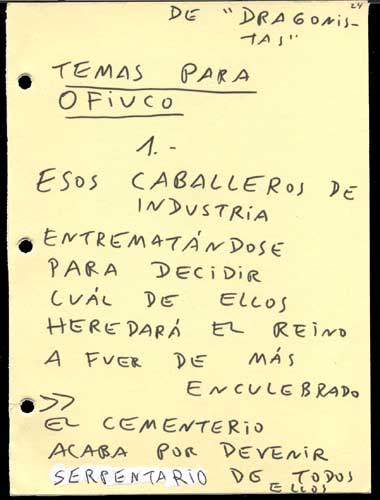 24
DE "DRAGONIS-
TAS"
TEMAS PARA
OFIUCO
1.-
ESOS CABALLEROS DE
INDUSTRIA
ENTREMATÁNDOSE
PARA DECIDIR
CUÁL DE ELLOS
HEREDARÁ EL REINO
A FUER DE MÁS
ENCULEBRADO
>>
EL CEMENTERIO
ACABA POR DEVENIR
SERPENTARIO DE TODOS
ELLOS